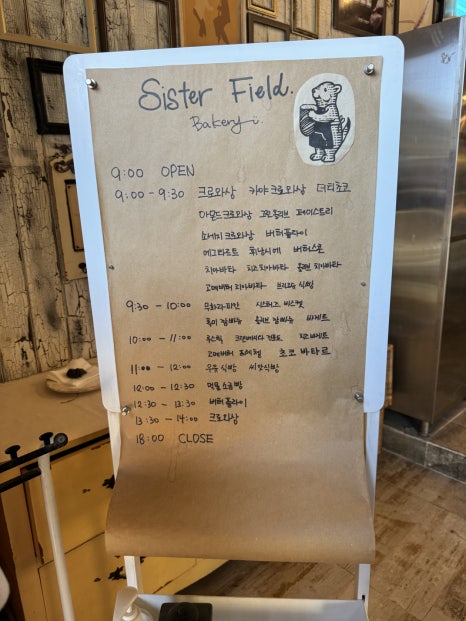 Sister Field.
Bakery
9:00 OPEN
9:00 - 9:30 크로와상 카야크로와상 더티초코
아몬드크로와상 그린올리브 페이스트리
소세지크로와상 버터플라이
에그타르트 휘낭시에 버터스콘
치아바타 치즈치아바타 올리브 치아바타
고메버터 치아바타 브리오슈 식빵
9:30 - 10:00 무화과피칸 시스터즈 비스켓
올리브 깜빠뉴 바게트
10:00 - 11:00 치즈바게트
고메버터 초코 바타르
11:00 - 12:00 우유식빵 씨앗식빵
12:00 - 12:30 먹물소금빵
12:30 - 13:30 버터플라이
13:30 - 14:00 크로와상
18:00 CLOSE